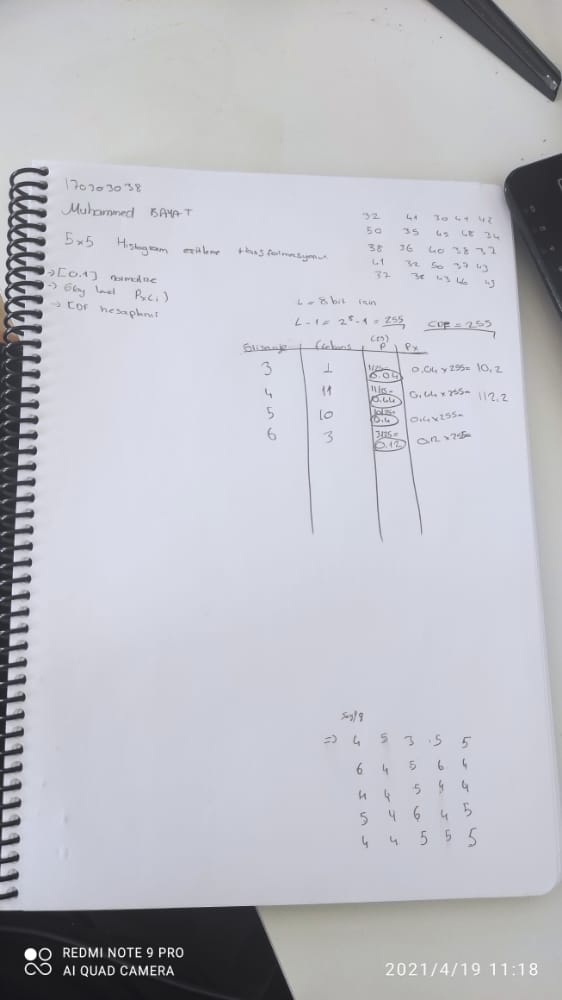 170303038
Muhammed BAYAT
5x5 Histogram eşitleme transformasyonu
→ [0.1] normalize
→ Gray level Px(i)
→ CDF hesaplanır
32 41 30 41 42
50 35 45 48 34
38 36 40 38 37
41 32 50 37 43
32 38 43 46 43
L = 8 bit icin
L-1 = 2⁸-1 = 255
CDF = 255
Frekans P Px
3 1 1/25= 0.04 0.04 x 255= 10,2
4 11 11/25= 0.44 0.44 x 255= 112,2
5 10 10/25= 0.4 0.4 x 255=
6 3 3/25= 0.12 0.12 x 255=
=> 4 5 3 5 5
6 4 5 6 4
4 4 5 4 4
5 4 6 4 5
4 4 5 5 5
REDMI NOTE 9 PRO
AI QUAD CAMERA
2021/4/19 11:18